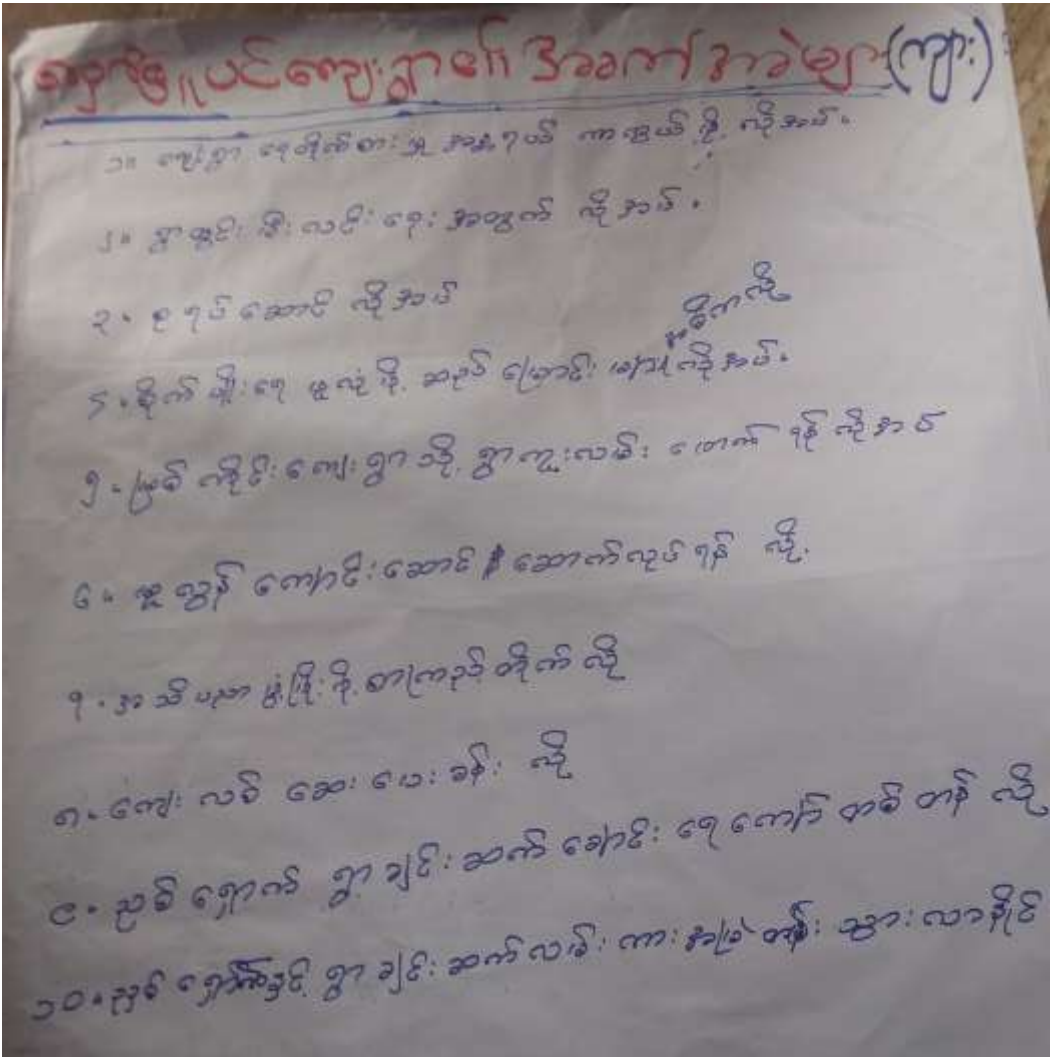 ရှောက်ဖျူပင်ကျေးရွာ၏ အခက်အခဲများ(ကျား)
၁။ ကျေးရွာ ရေတိုက်စားမှု အန္တရယ် ကာကွယ်ဖို့ လိုအပ်။
၂။ ရွာတွင်း မီးလင်းရေး အတွက် လိုအပ်။
၃။ ဓမ္မာရုံ ဆောင် လိုအပ်
၄။ စိုက်ပျိုးရေ ဖူလုံဖို့ ဆည်မြောင်း များ လိုအပ်။
အဓိကလို
၅။ မြစ်ကိုင်းကျေးရွာသို့ ရွာကူးလမ်း ဖောက် ရန် လိုအပ်
၆။ မူလွန် ကျောင်းဆောင် ဆောက်လုပ်ရန် လို
၇။ အသိပညာ ဖွံ့ဖြိုးဖို့ စာကြည့်တိုက် လို
၈။ ကျေးလက် ဆေးပေးခန်း လို
၉။ ညှစ် ရှောက် ရွာချင်းဆက် ချောင်း ရေကျော် တစ် တန် လို
၁၀။ ညှစ် ရှောက်နှင့် ရွာချင်းဆက်လမ်း ကား အမြဲတန်း သွားလာနိုင်